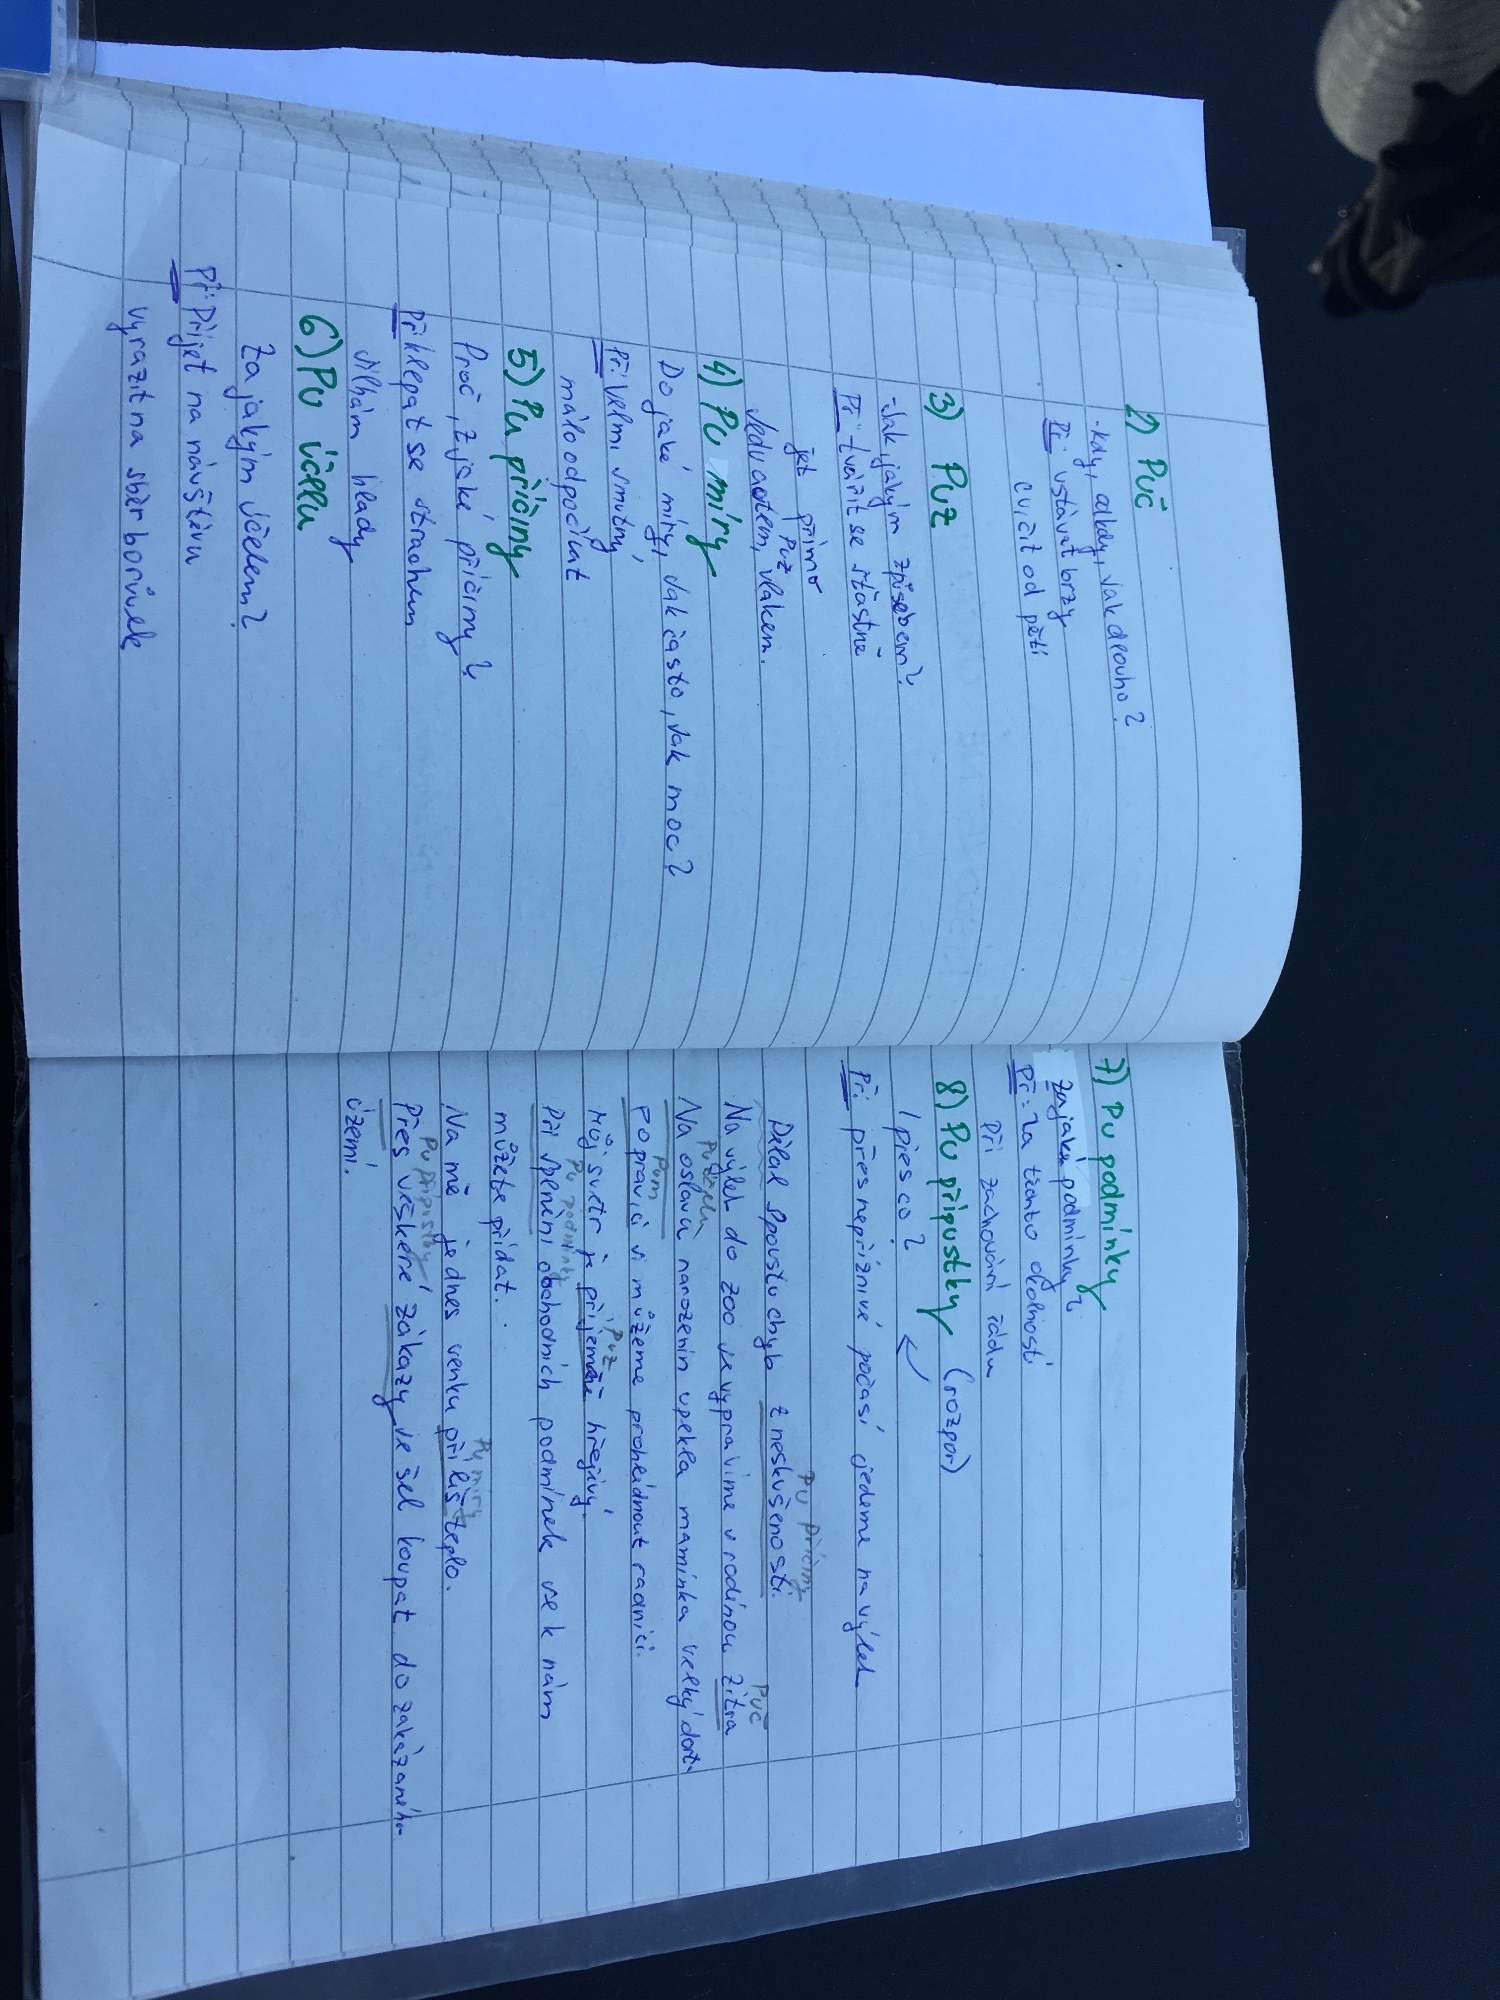 2) Puč
- kdy, odkdy, jak dlouho?
Př: vstávat brzy
cvičit od pěti
3) Puz
- Jak, jakým způsobem?
Př: tvářit se šťastně
jet přímo
Puz
Jedu autem, vlakem.
4) Pu míry
Do jaké míry, jak často, jak moc?
Př: velmi smutný
málo odpočinut
5) Pu příčiny
Proč, z jaké příčiny?
Př: klepat se strachem
šilhám hlady
6) Pu účelu
Za jakým účelem?
Př: Přijet na návštěvu
vyrazit na sběr borůvek
7) Pu podmínky
Za jaké podmínky?
Př: Za těchto okolností
Při zachování řádu
8) Pu přípustky (rozpor)
/ přes co?
Př: přes nepříznivé počasí jedeme na výlet
Pu příčiny
Dělal spoustu chyb z neskušenosti.
Puč
Na výlet do zoo se vypravíme s rodinou zítra
Pu účelu
Na oslavu narozenin upekla maminka velký dort.
Pum
Po pravici si můžeme prohlédnout radnici.
Puz
Můj svetr je příjemně hřejivý.
Pu podmínky
Při splnění obchodních podmínek se k nám
můžete přidat.
Pu míry
Na mě je dnes venku příliš teplo.
Pu přípustky
Přes veškeré zákazy se šel koupat do zakázaného
území.